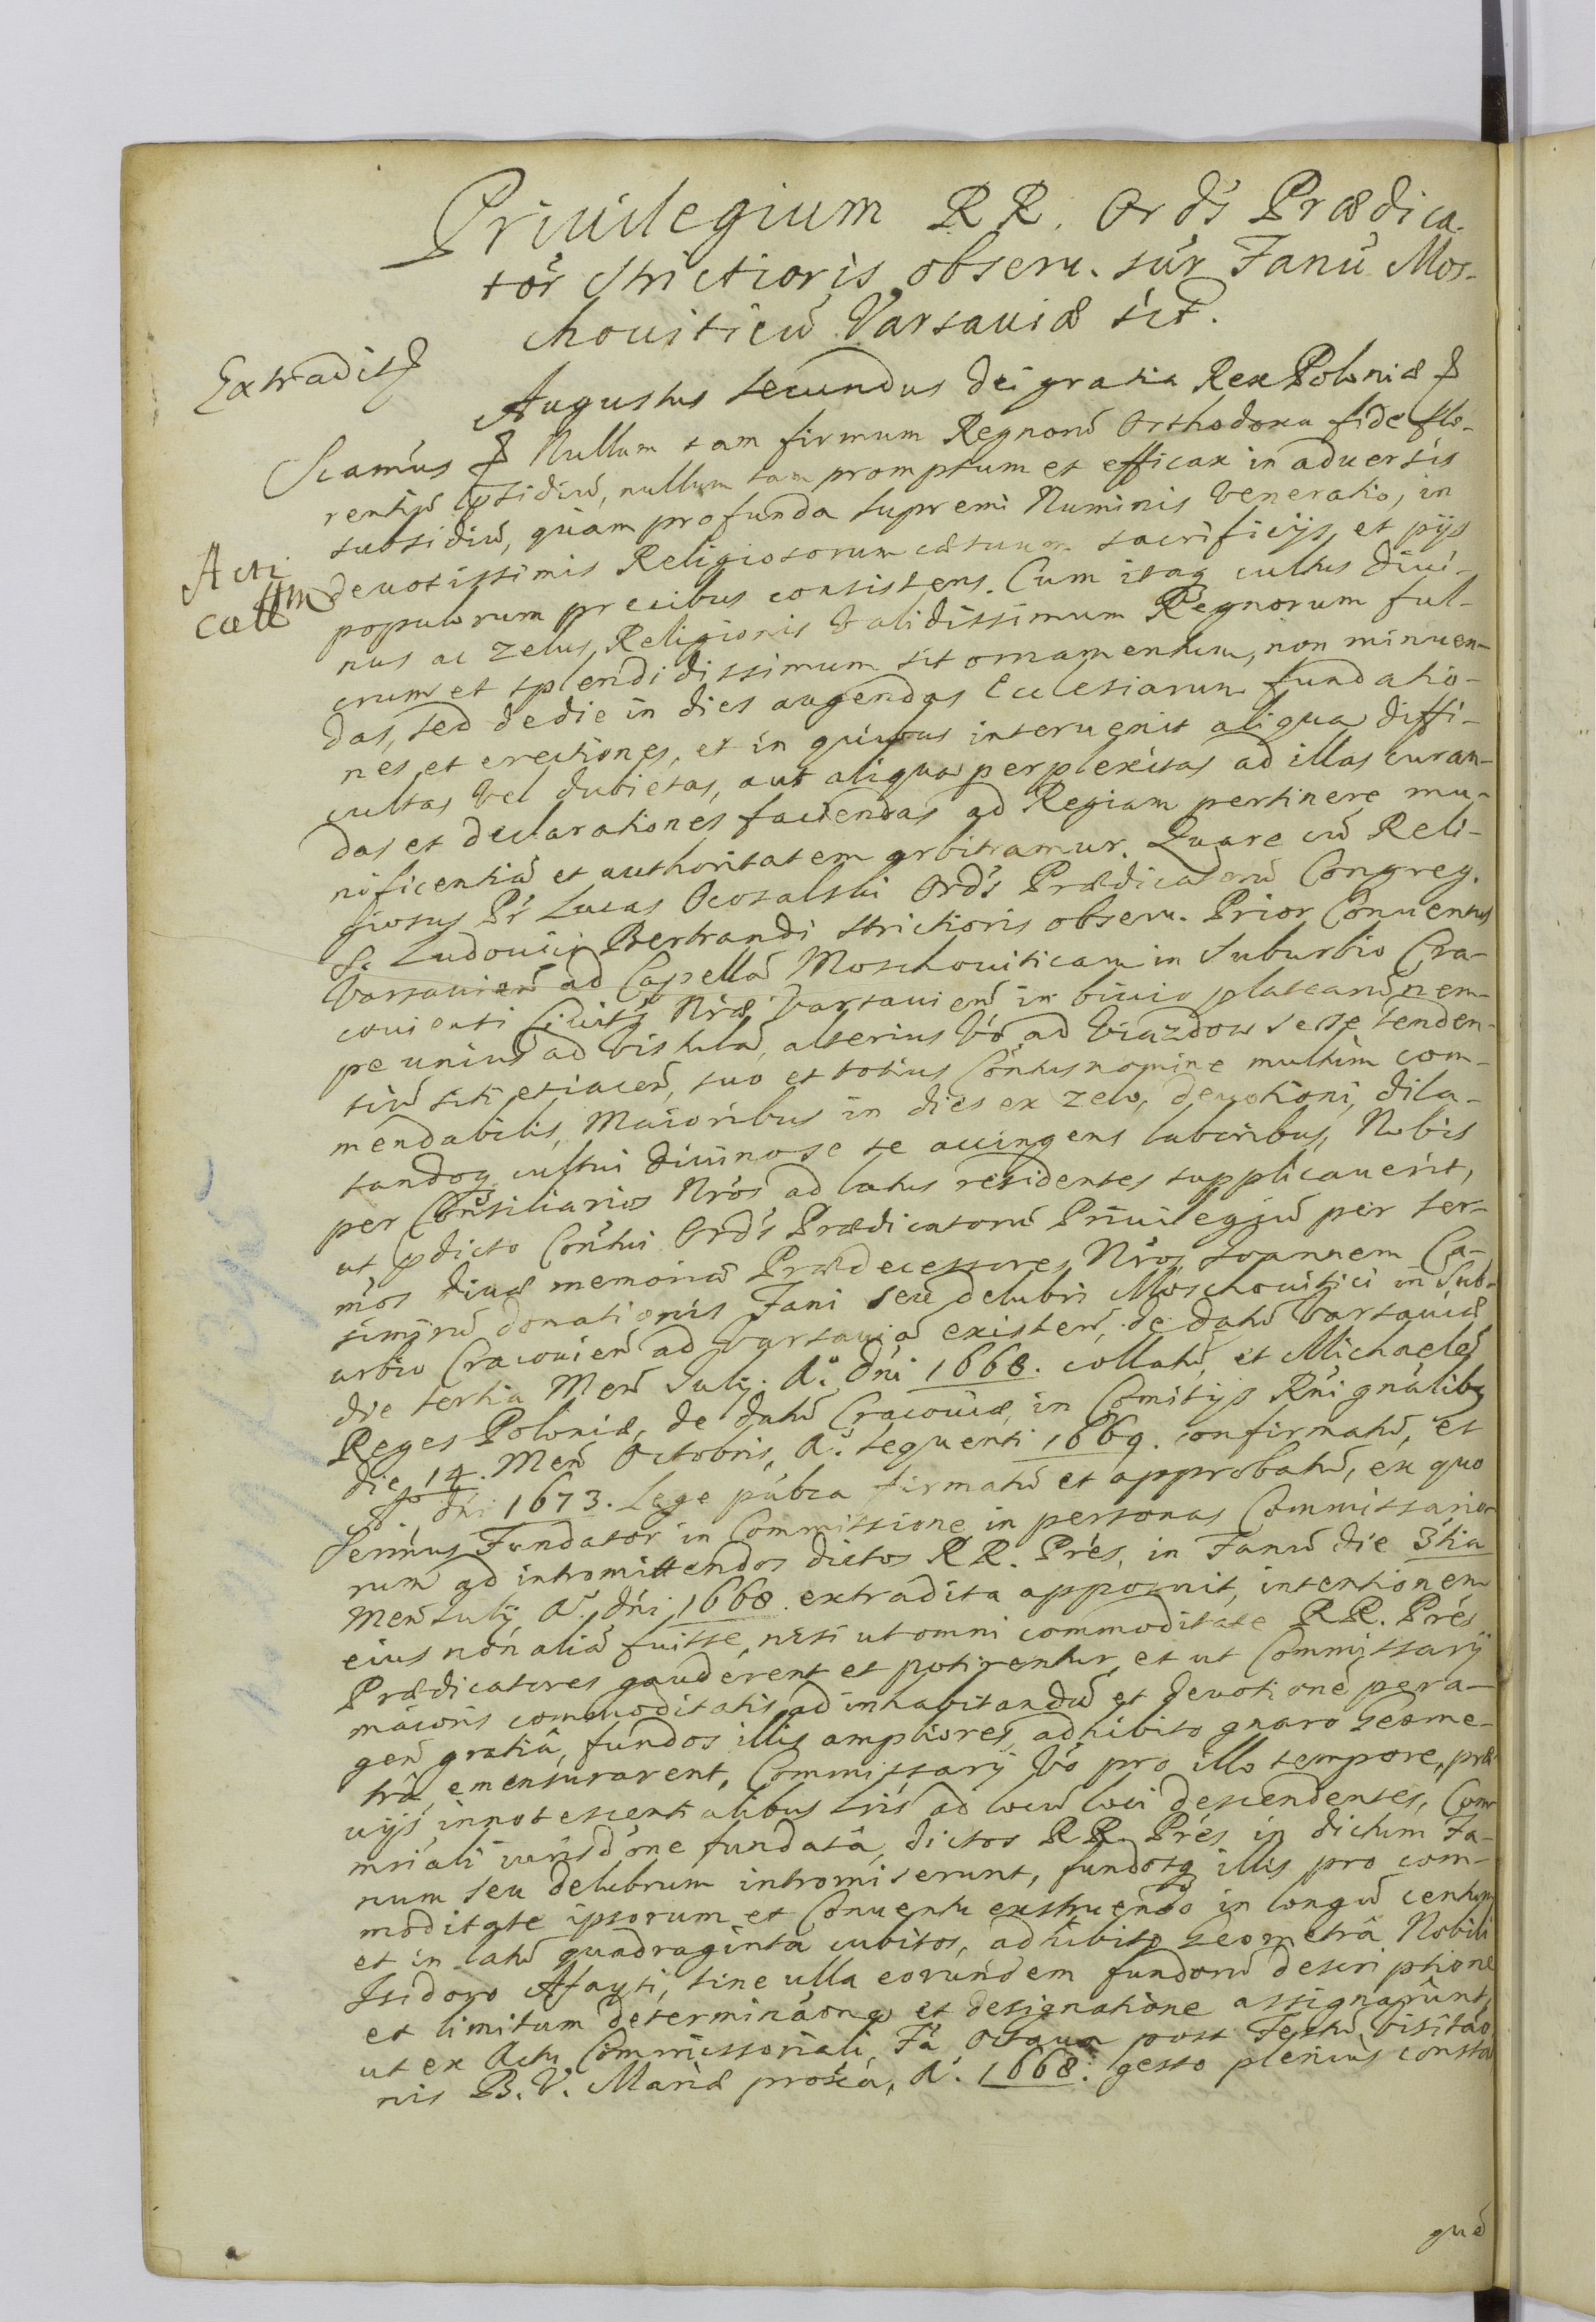 Priuilegium RR. Ord's Prædica-
tor̃ Strictioris obseru. sup̃r Fanū Mos-
chouiticū Varsauiæ sit.
Extradit
Augustus Secundus Dei gratia Rex Poloniæ &
Sciam̃us & Nullum tam firmum Regnorū Orthodoxa fide flo-
rentiū p̃sidiū, nullum tam promptum et efficax in aduersis
subsidiū, quam profunda supremi Numinis Veneratio, in
Acti
devotissimis Religiosorum cætuum sacrificijs, et pijs
Cæll
populorum precibus consistens. Cum itaq cultus diui-
nus ac zelus, Religionis Validissimum Regnorum ful-
crum et splendidissimum sit ornamentum, non minuen-
das, sed de die in dies augendas Ecclesiarum fundatio-
nes, et erectiones, et in quibus interuenit aliqua diffi-
cultas vel dubietas, aut aliqua perplexitas ad illas curan-
das et declarationes faciendas ad Regiam pertinere mu-
nificentiā et authoritatem arbitramur. Quare cū Reli-
giosus Pr̃ Lucas Ord's Prædicatorū Congreg.
S. Ludouici Bertrandi strictioris obseru. Prior Conuentus
Varsauień ad Capellā Moschouiticam in Suburbio Cra-
couienti Ciuits Nr̃æ Varsauień in biuio platearū nem-
pe unius ad Vistulā, alterius vō ad Viazdow sese tenden-
tiū siti et iacen̄, suo et totius Con̄tus nomine multim com-
mendabilis, Maioribus in dies ex zelo, deuotioni, dila-
tandoq cultui diuino se se accingens laboribus, Nobis
per Consiliarios Nr̃os ad latus residentes supplicauerit,
ut p̃dicto Con̄tui Ord's Prædicatorū Priuilegiū per Ser-
mos diuæ memoriæ Prædecessores Nr̃os, Joannem Ca-
simirū donationis Fani seu delubri Moschouitici in Sub-
urbio Cracouień ad Varsauiā existen̄, de datū Varsauiæ
die tertia Men̄ Julij. A° Dni 1668. collatū, et Michaelē
Reges Poloniæ, de datū Cracouiæ, in Comitijs Rni gnalibq
die 14. Men̄ Octobris, A° sequenti 1669. confirmatū, et
A° Dni 1673. Lege publca firmatū et approbatū, ex quo
Serimus Fundator in Commissione in personas Commissario-
rum ad intromittendos dictos RR. Pres, in Fanū die 3tia
Men̄ Julij A° Dni 1668 extradita apposuit, intentionem
eius non aliā fuisse, nisi ut omni commoditate RR. Pres
Prædicatores gauderent et potirentur, et ut Commissarij
maioris commoditatis, ad inhabitandū et deuotionē pera-
gen̄ gratiâ, fundos illis ampliores, adhibito gnaro Geome-
trâ, emensurarent, Commissarij vō pro illo tempore, præ
uijs innotescentialibus lris ad locū loci descendentes, Com
mriali iurisdōne fundatâ, dictos RR. Pres in dictum Fa-
num seu delubrum intromiserunt, fundosq illis pro com-
moditate ipsorum et Conuentu exstruendo in longū centum
et in latū quadraginta cubitos, adhibito Geometrâ Nobili
Isidoro Afayti, sine ulla eorundem fundorū descriptione
et limitum determinaōne et designatione assignarunt,
ut ex Actu Commissoriali, Fa Octaua post Festū visitao
nis B. V. Mariæ proxa, A°. 1668. gesto plenius consta
quē